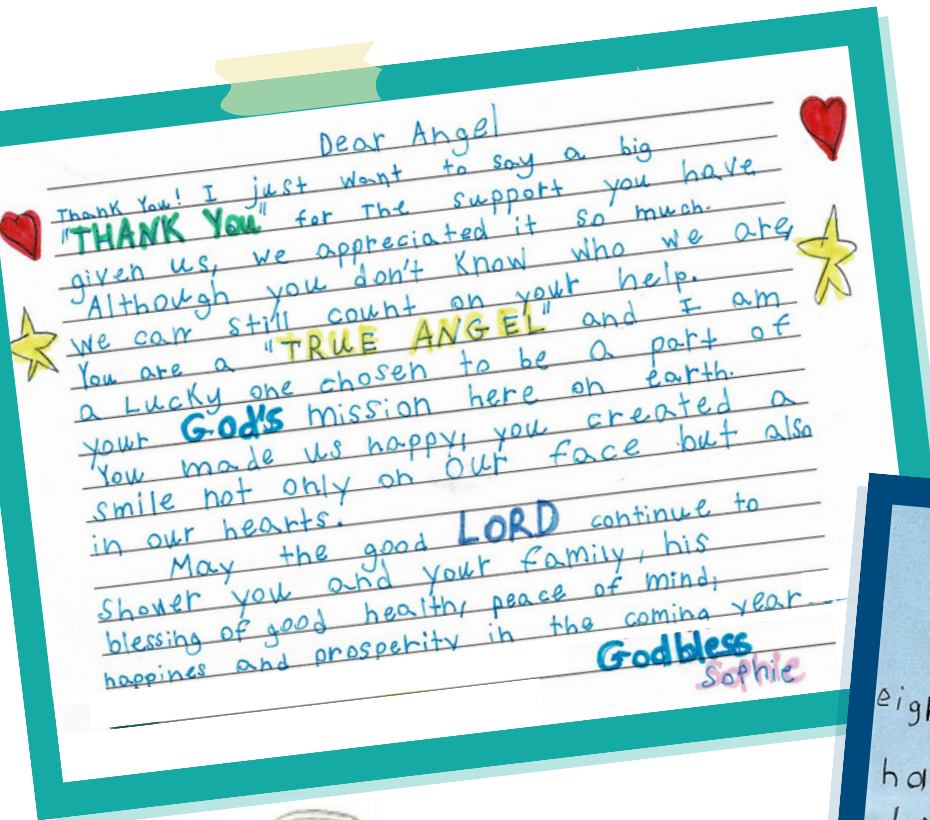 Dear Angel
Thank You! I just want to say a big
"THANK You" for The support you have
given us, we appreciated it so much.
Although you don't Know who we are,
we can still count on your help.
You are a "TRUE ANGEL" and I am
a Lucky one chosen to be a part of
your God's mission here on earth.
You made us happy, you created a
smile not only on our face but also
in our hearts.
May the good LORD continue to
shower you and your family, his
blessing of good health, peace of mind,
happines and prosperity in the coming year
Godbless
Sophie
ha